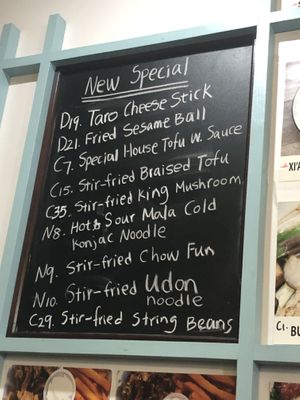 New Special
D19. Taro Cheese Stick
D21. Fried Sesame Ball
C7. Special House Tofu w. Sauce
C15. Stir-fried Braised Tofu
C35. Stir-fried King Mushroom
N8. Hot & Sour Mala Cold
Konjac Noodle
N9. Stir-fried Chow Fun
N10. Stir-fried Udon
noodle
C29. Stir-fried String Beans
XI'A
C1. BU